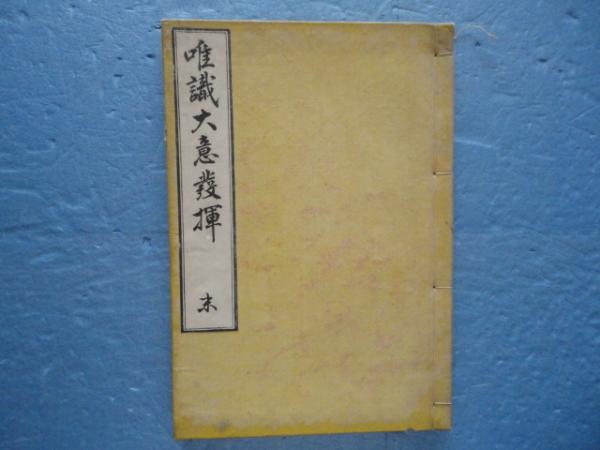 唯識大意發揮
末